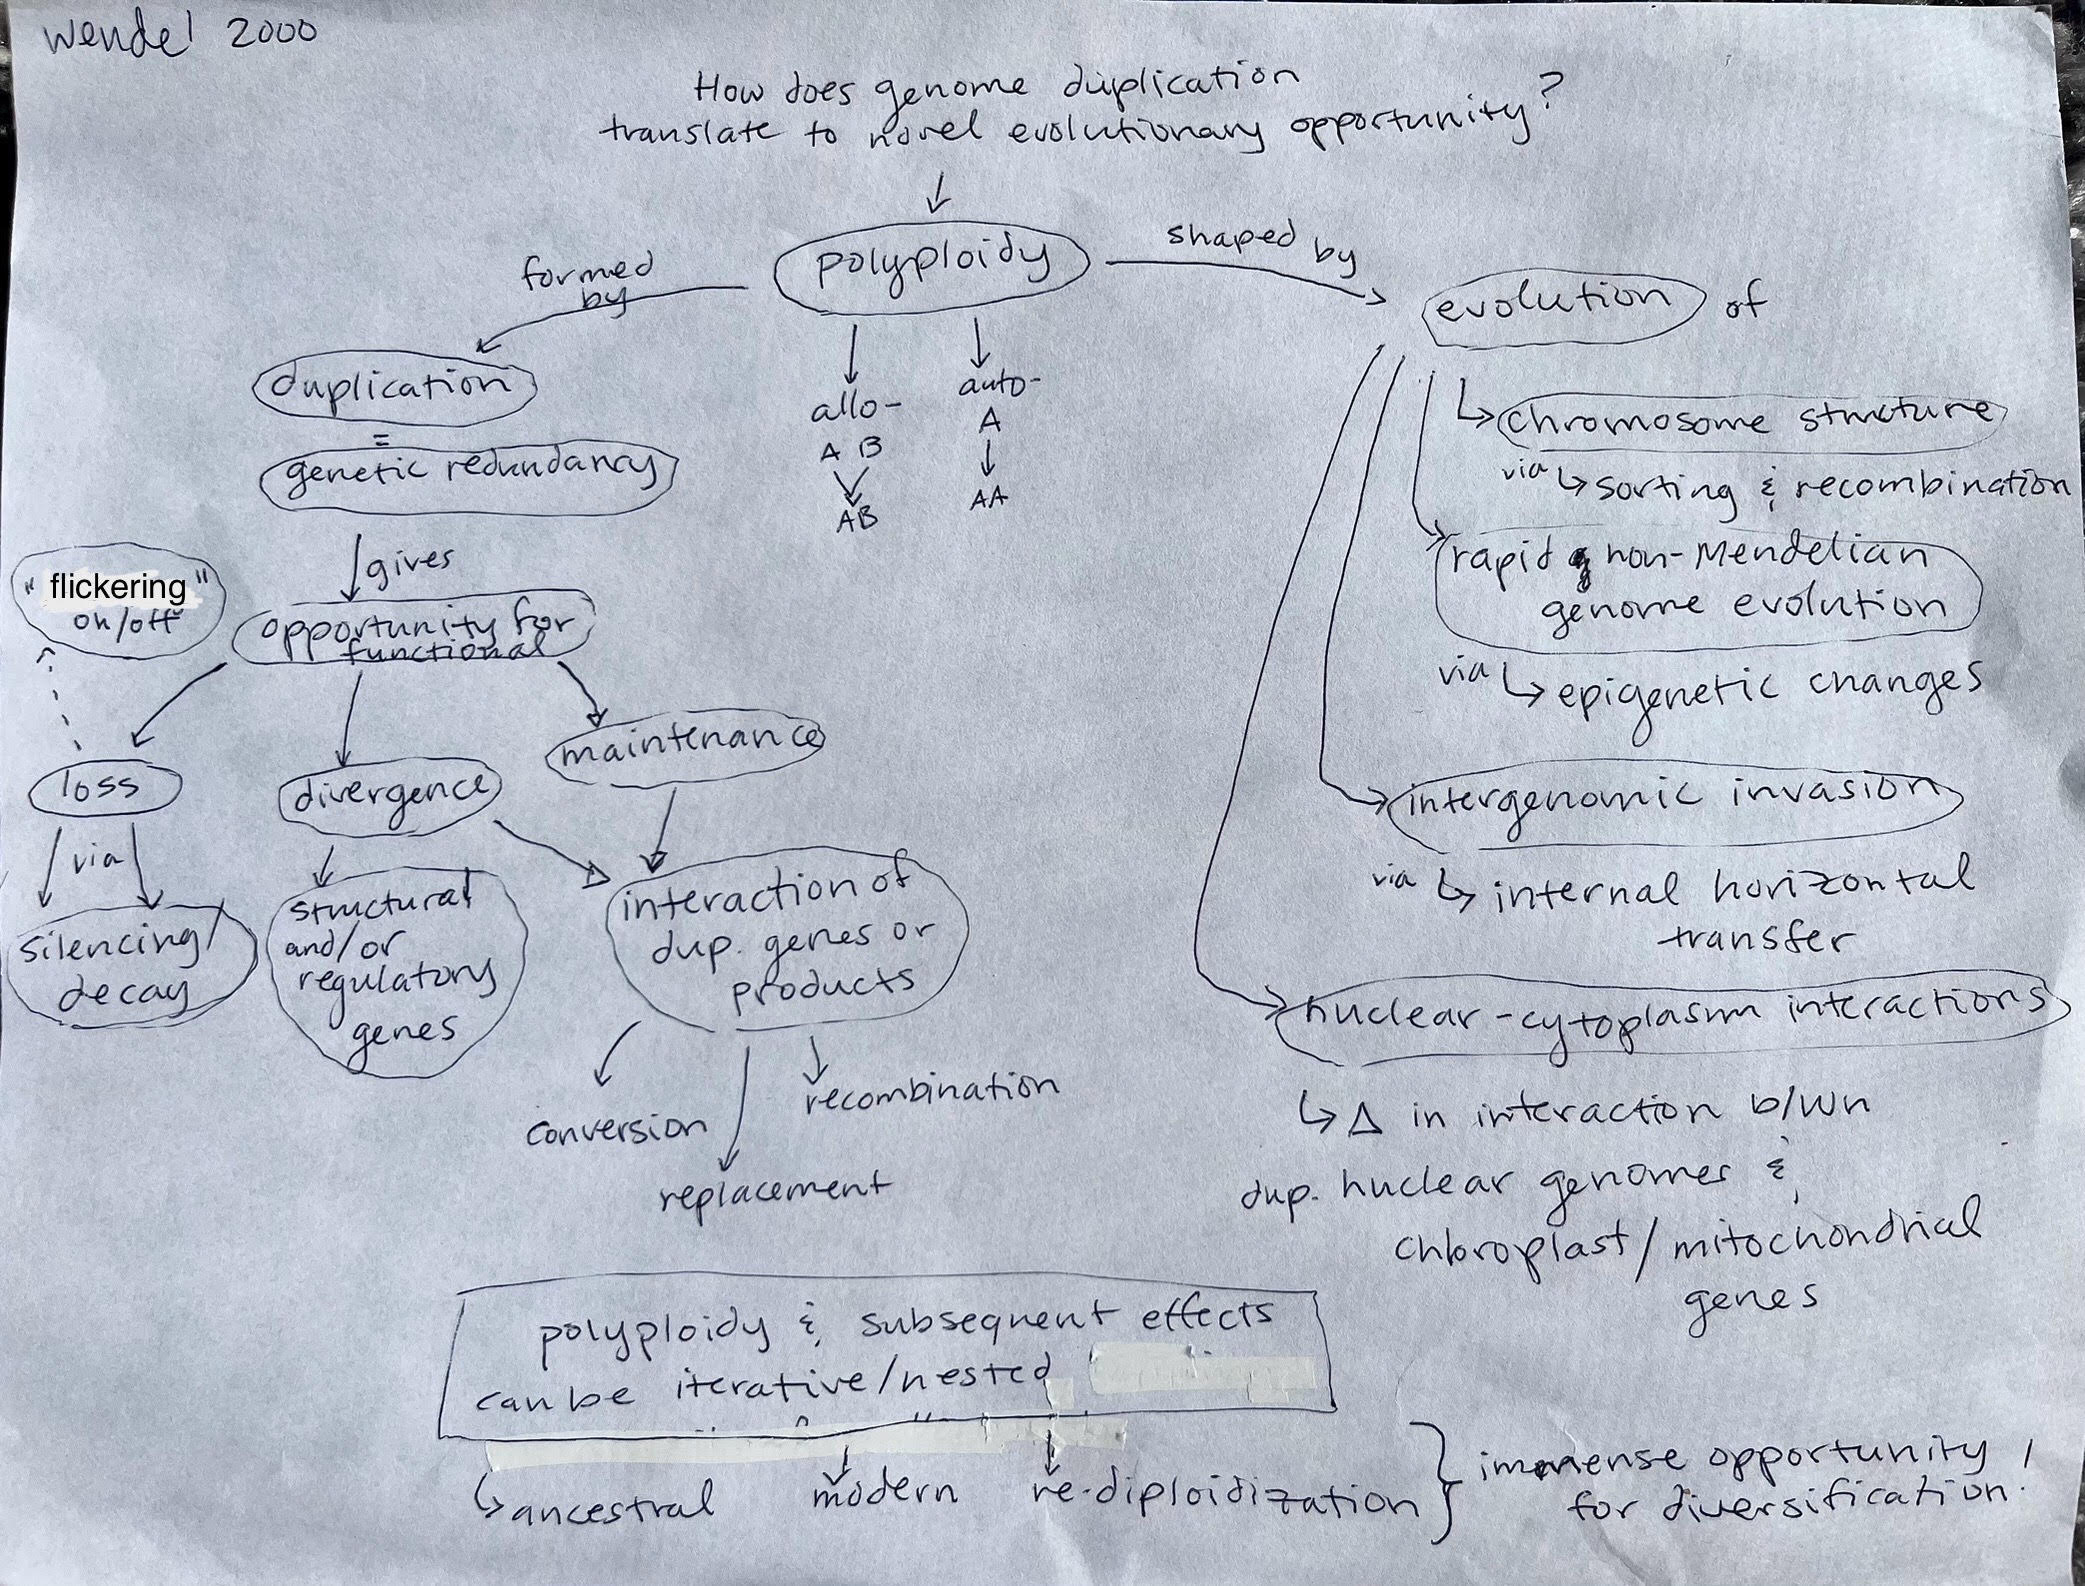 Wendel 2000
How does genome duplication
translate to novel evolutionary opportunity?
polyploidy
formed
by
shaped by
evolution of
duplication
=
genetic redundancy
allo-
A B
AB
auto-
A
AA
gives
"flickering"
on/off
opportunity for
functional
loss
divergence
maintenance
via
silencing/
decay
structural
and/or
regulatory
genes
interaction of
dup. genes or
products
conversion
replacement
recombination
chromosome structure
via ↳ sorting & recombination
rapid & non-Mendelian
genome evolution
via ↳ epigenetic changes
intergenomic invasion
via ↳ internal horizontal
transfer
nuclear-cytoplasm interactions
↳ Δ in interaction b/wn
dup. nuclear genomes &
chloroplast/mitochondrial
genes
polyploidy & subsequent effects
can be iterative/nested
↳ ancestral
modern
re-diploidization
} immense opportunity
for diversification!